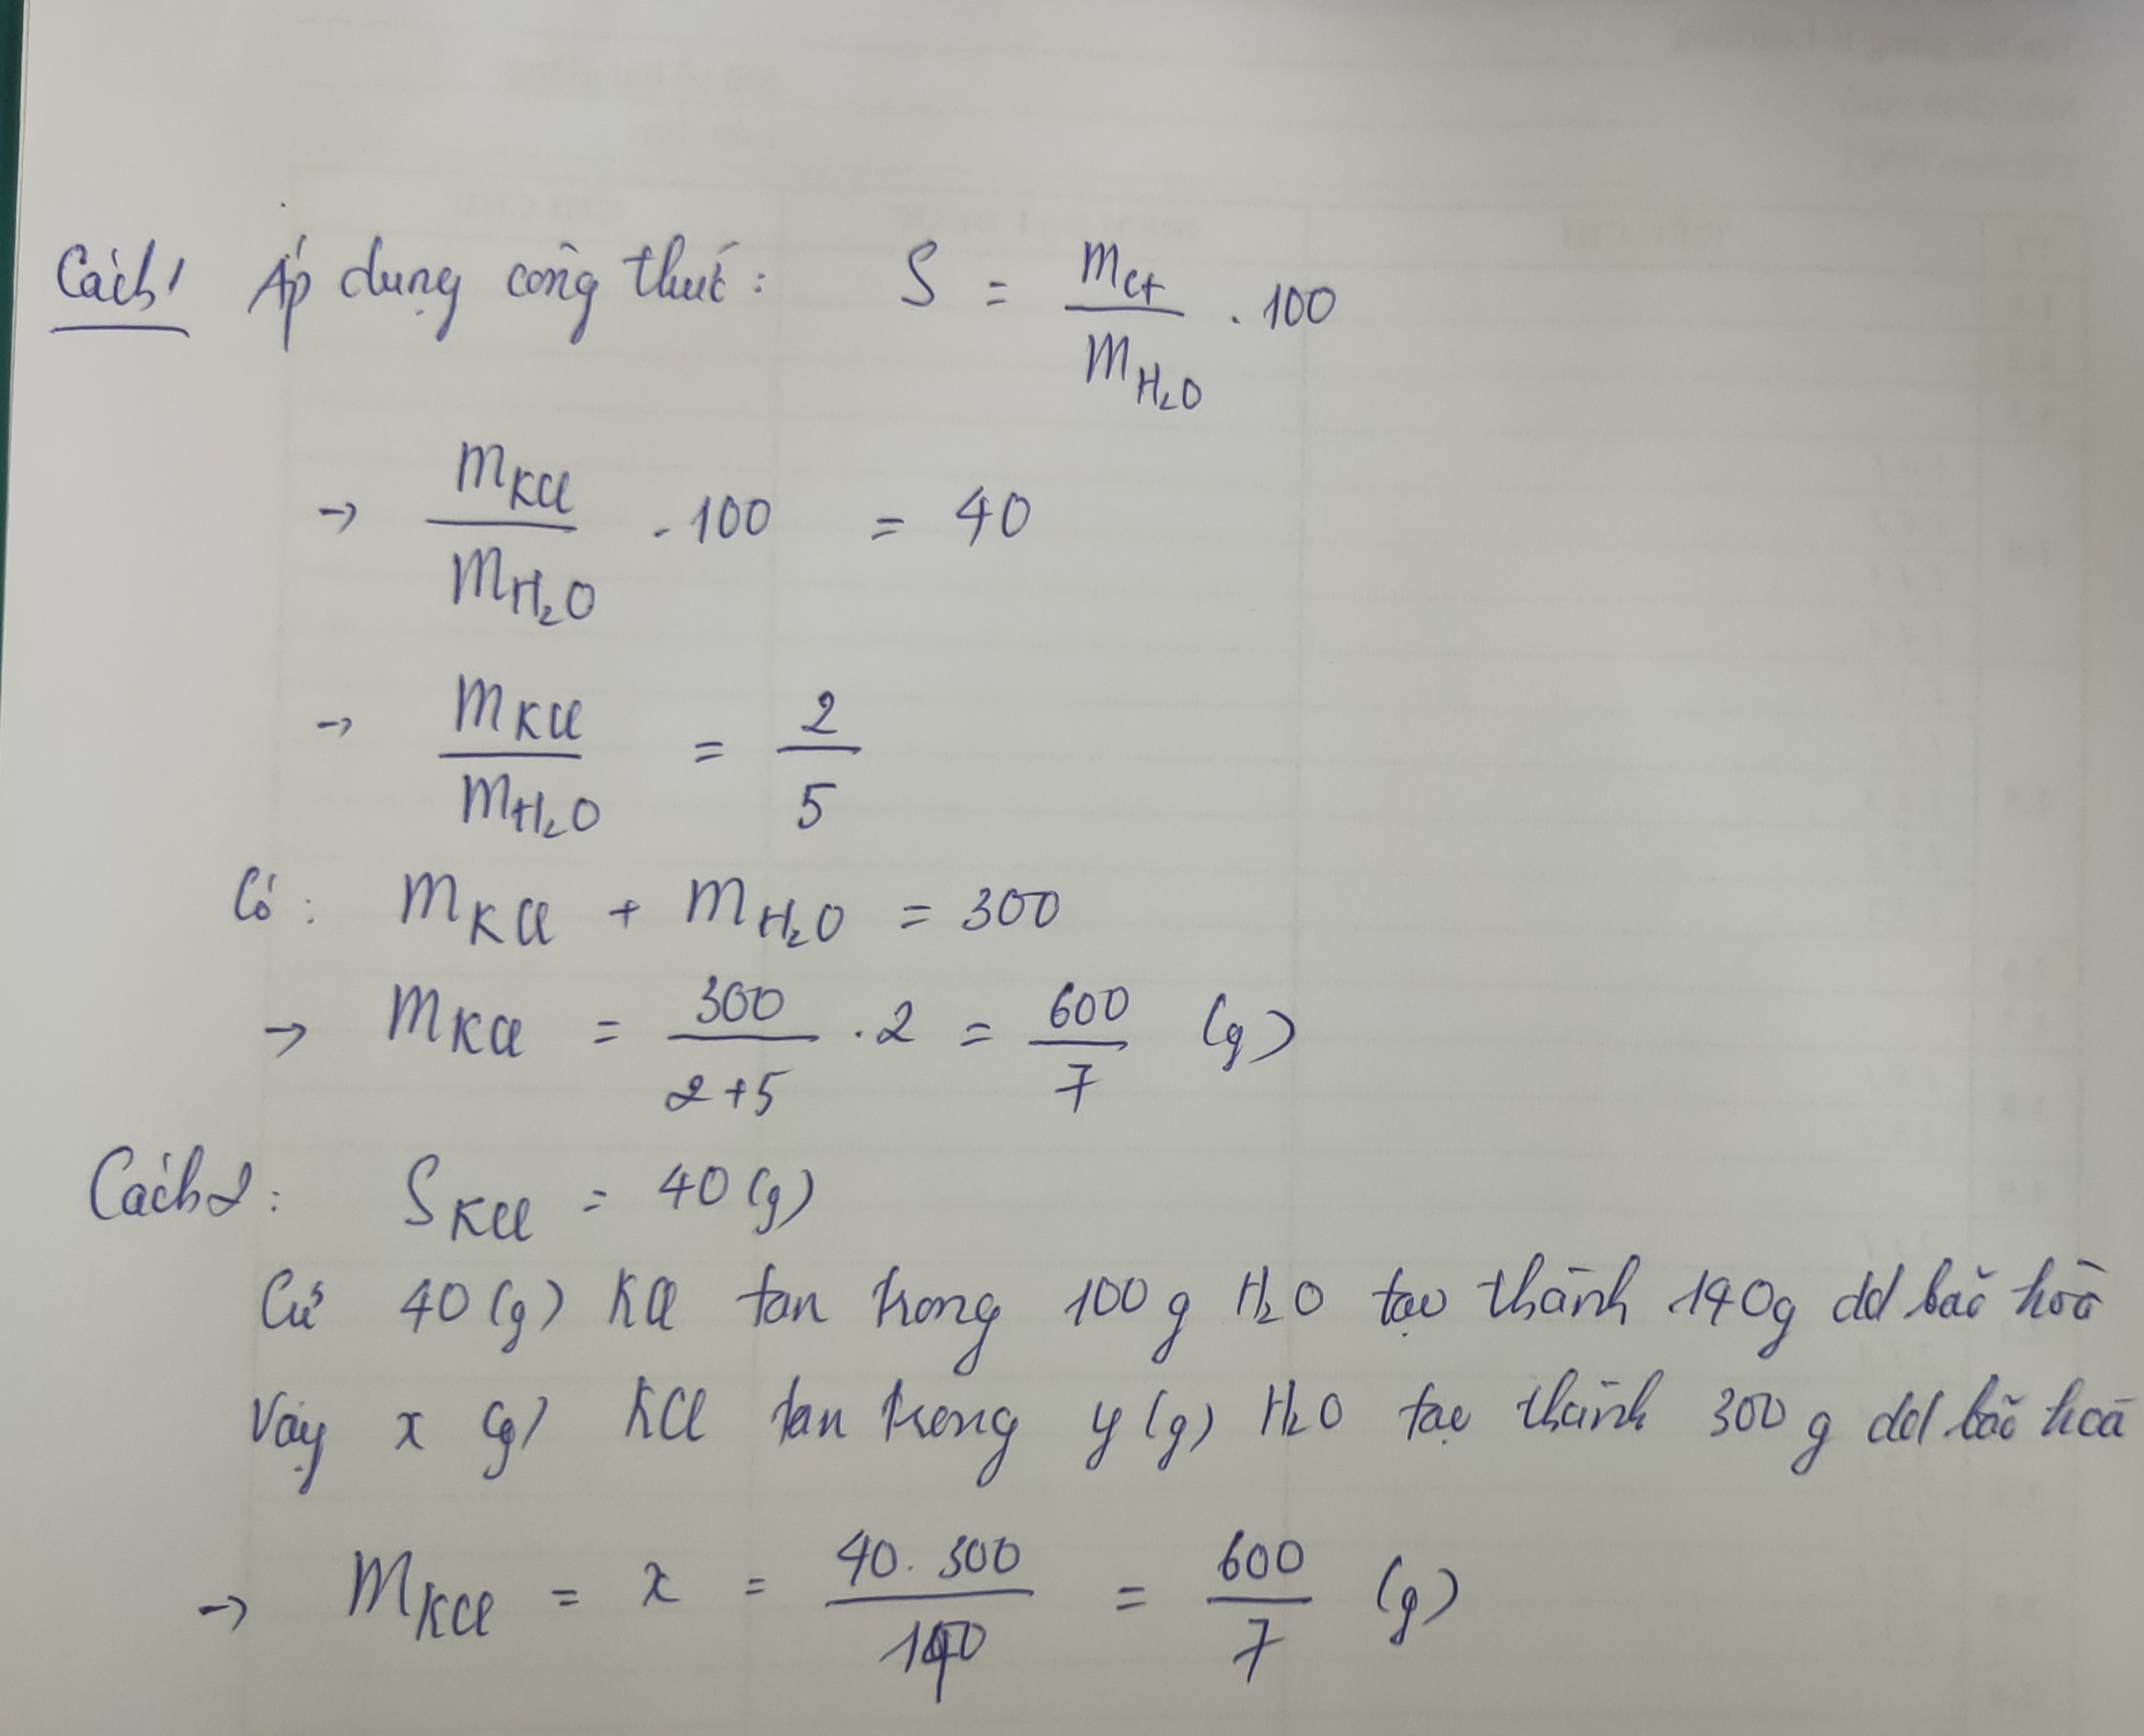 Cách 1 Áp dụng công thức: S = mct / mH₂O . 100
→ mKCl / mH₂O . 100 = 40
→ mKCl / mH₂O = 2 / 5
Có: mKCl + mH₂O = 300
→ mKCl = 300 / 2+5 . 2 = 600 / 7 (g)
Cách 2: SKCl = 40 (g)
Cứ 40 (g) KCl tan trong 100 g H₂O tạo thành 140g dd bão hoà
Vậy x (g) KCl tan trong y (g) H₂O tạo thành 300 g dd bão hoà
→ mKCl = x = 40. 300 / 140 = 600 / 7 (g)